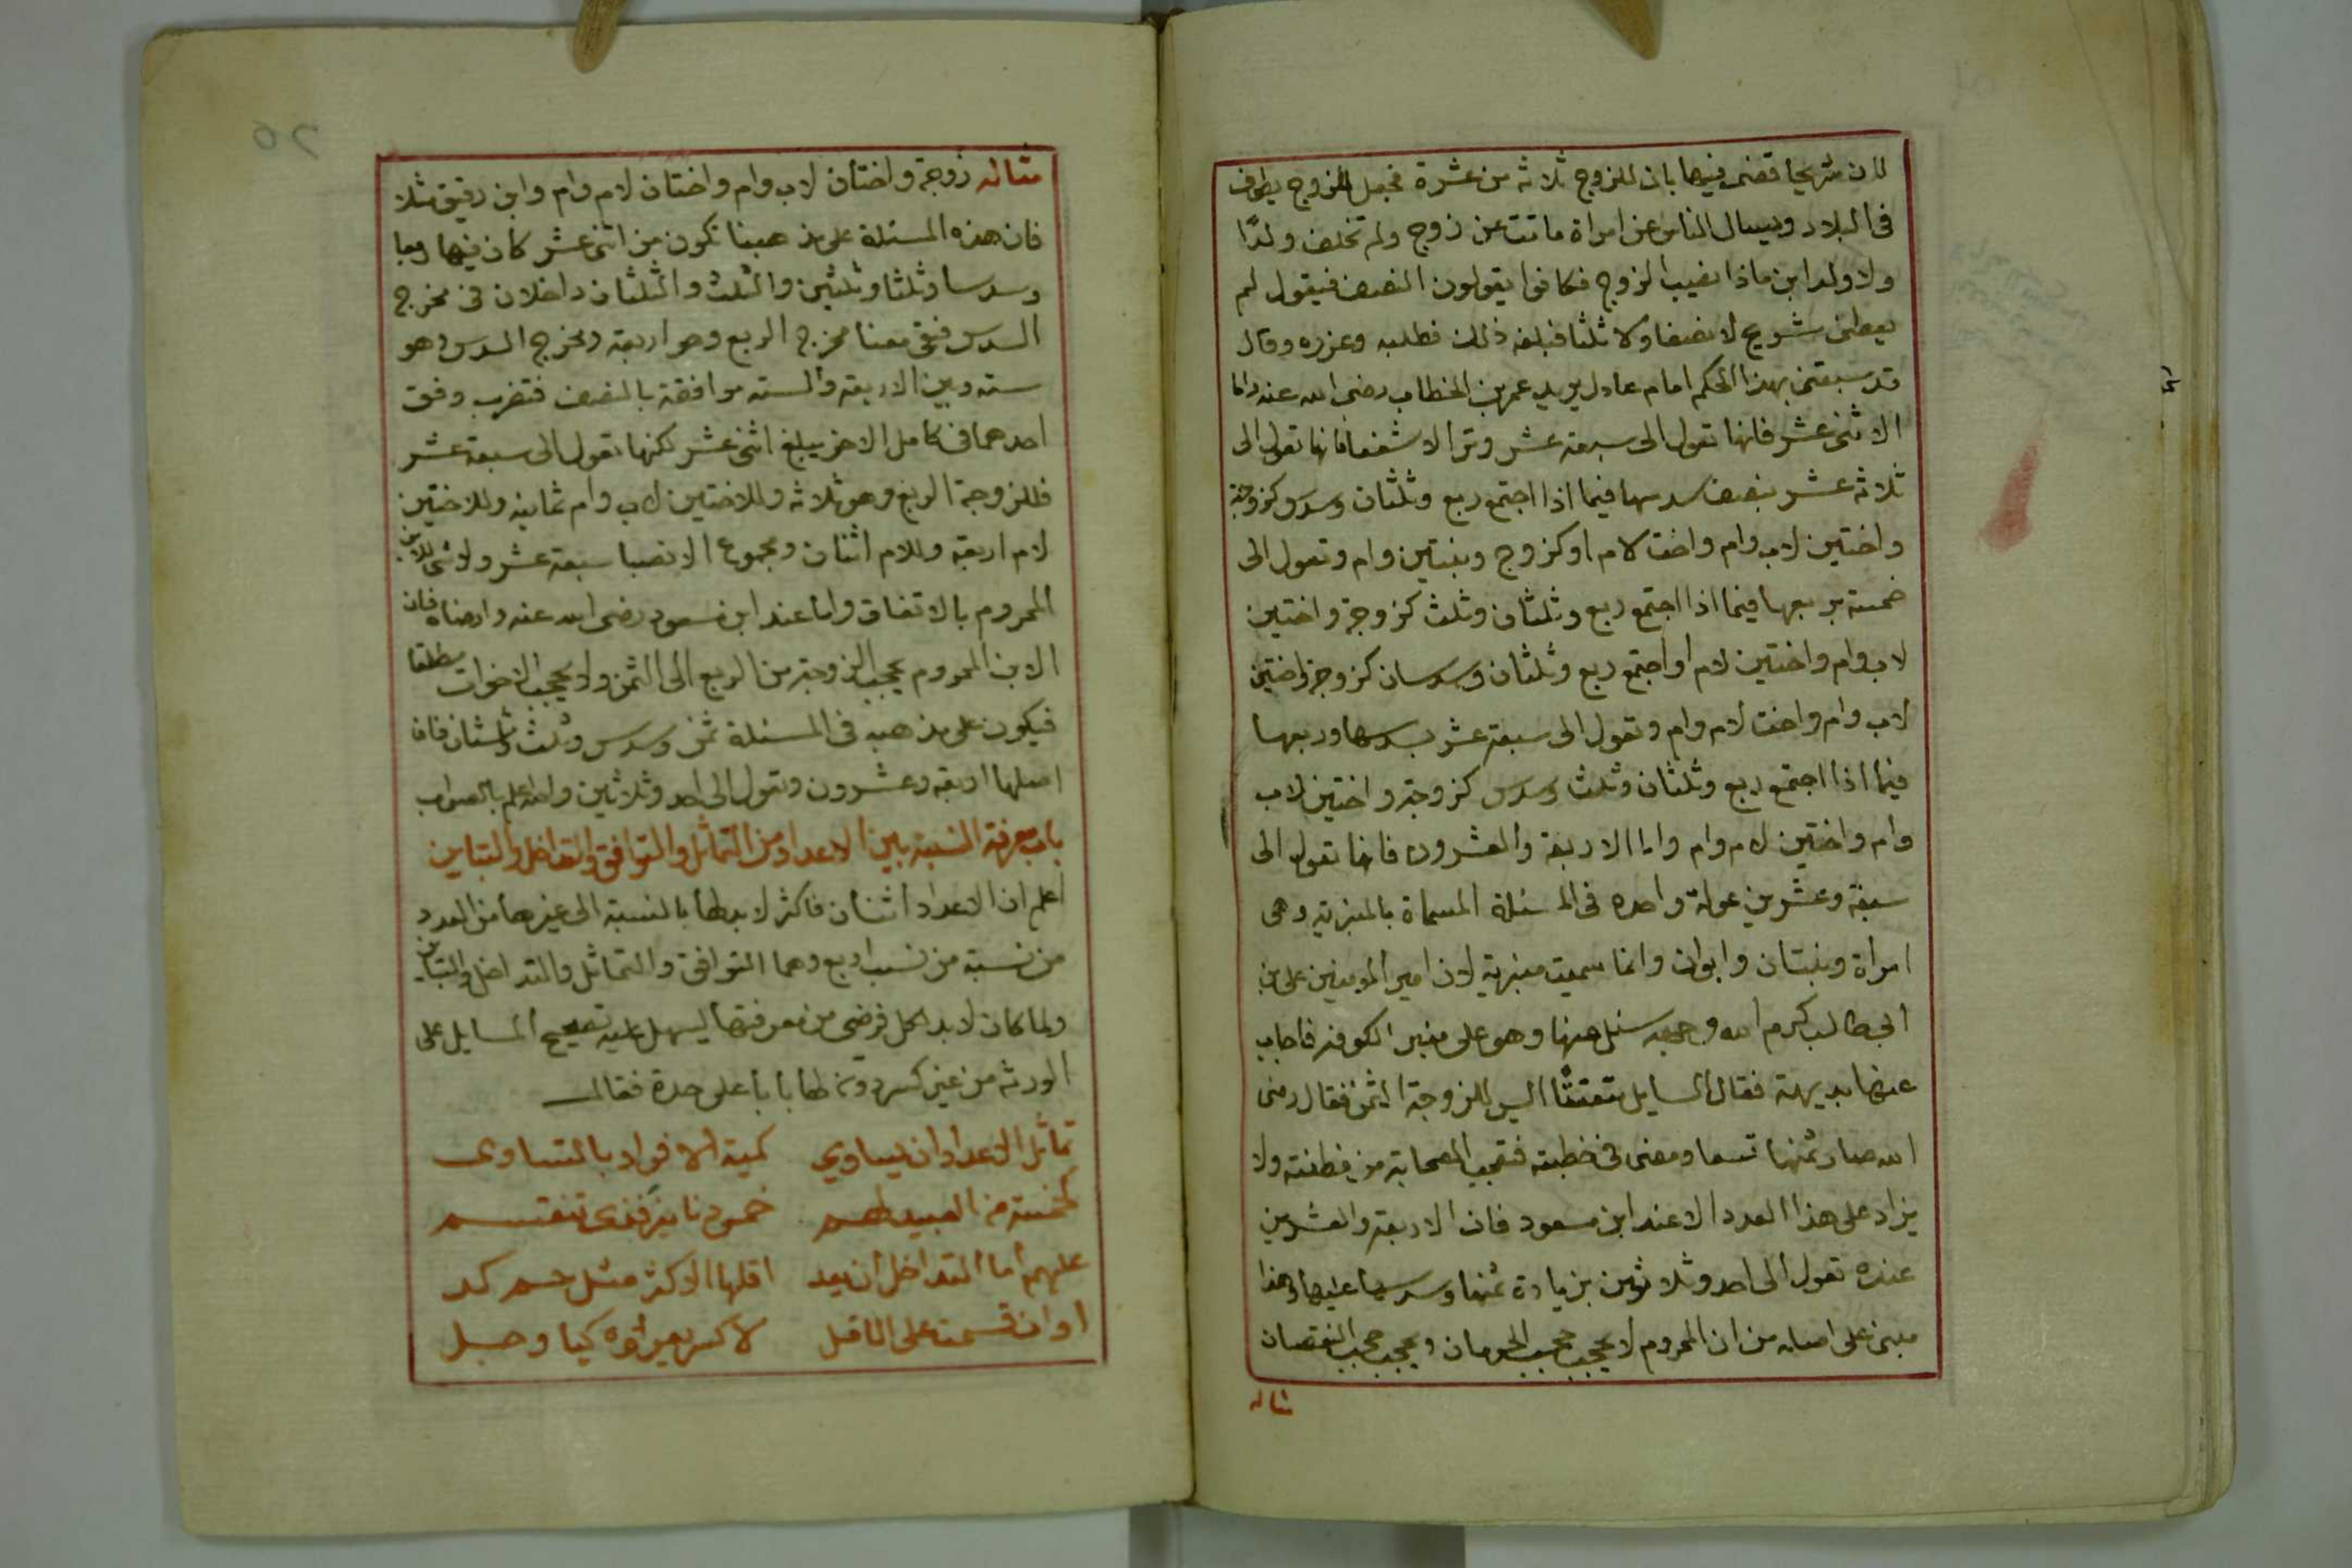 لان شريحا قضى فيها بان للزوج ثلاثة من عشرة فجعل الزوج يطوف
فى البلاد ويسال الناس عن امراة ماتت عن زوج ولم تخلف ولدًا
ولا ولد ابن ماذا نصيب الزوج فكانوا يقولون النصف فيقول لم
يعطنى شريح لا نصفا ولا ثلثا فبلغه ذلك فطلبه وعزره وقال
قد سبقنى بهذا الحكم امام عادل يريد عمر بن الخطاب رضى الله عنه واما
الاثنى عشر فانها تعول الى سبعة عشر وترا لا شفعا فانها تعول الى
ثلاثة عشر بنصف سدسها فيما اذا اجتمع ربع وثلثان وسدس كزوجة
واختين لاب وام واخت لام او كزوج وبنتين وام وتعول الى
خمسة بربعها فيما اذا اجتمع ربع وثلثان وثلث كزوجة واختين
لاب وام واختين لام او اجتمع ربع وثلثان وسدسان كزوجة واختين
لاب وام واخت لام وام وتعول الى سبعة عشر بسدسها وربعها
فيما اذا اجتمع ربع وثلثان وثلث وسدس كزوجة واختين لاب
وام واختين لام وام واما الاربعة والعشرون فانها تعول الى
سبعة وعشرين عولة واحده فى المسئلة المسماة بالمنبرية وهى
امراة وبنتان وابوان وانما سميت منبرية لان امير المومنين على بن
ابى طالب كرم الله وجهه سئل عنها وهو على منبر الكوفة فاجاب
عنها بديهة فقال السايل متعنتًا اليس للزوجة الثمن فقال رضى
الله صار ثمنها تسعا ومضى فى خطبته فتعجب الصحابة من فطنته ولا
يزاد على هذا العدد الا عند ابن مسعود فان الاربعة والعشرين
عنده تعول الى احد وثلاثين بزيادة ثمنها وسدسها عليها وهذا
مبنى على اصله من ان المحروم لا يحجب حجب الحرمان ويحجب حجب النقصان
مثاله
مثاله زوجة واختان لاب وام واختان لام وام وابن رقيق مثلا
فان هذه المسئلة على مذهبنا تكون من اثنى عشر كان فيها ربعا
وسدسا وثلثا وثلثين والثلث والثلثان داخلان فى مخرج
السدس فبقى معنا مخرج الربع وهو اربعة ومخرج السدس وهو
ستة وبين الاربعة والستة موافقة بالنصف فتضرب وفق
احدهما فى كامل الاخر يبلغ اثنى عشر لكنها تعول الى سبعة عشر
فللزوجة الربع وهو ثلاثة وللاختين لاب وام ثمانية وللاختين
لام اربعة وللام اثنان ومجموع الانصبا سبعة عشر ولا شى للابن
المحروم بالاتفاق واما عند ابن مسعود رضى الله عنه وارضاه فان
الابن المحروم يحجب الزوجة من الربع الى الثمن ولا يحجب الاخوات مطلقا
فيكون على مذهبه فى المسئلة ثمن وسدس وثلث وثلثان فان
اصلها اربعة وعشرون وتعول الى احد وثلاثين والله اعلم بالصواب
باب معرفة النسبة بين الاعداد من التماثل والتوافق والتداخل والتباين
اعلم ان الاعداد اثنان فاكثر لابد لها بالنسبة الى غيرها من العدد
من نسبة من نسب اربع وهما التوافق والتماثل والتداخل والتباين
ولما كان لابد لكل فرضى من معرفتها ليسهل عليه تصحيح المسايل على
الورثة من غير كسر دون لها بابا على حدة فقال
تماثل الاعداد ان يساوي كمية الافراد بالتساوى
كخمسة من العبيد لهم خمس دنانير فذى تنقسم
عليهم اما التداخل ان يعد اقلها الاكثر مثل حسم كد
او ان قسمته على الاقل لا كسر يعرو